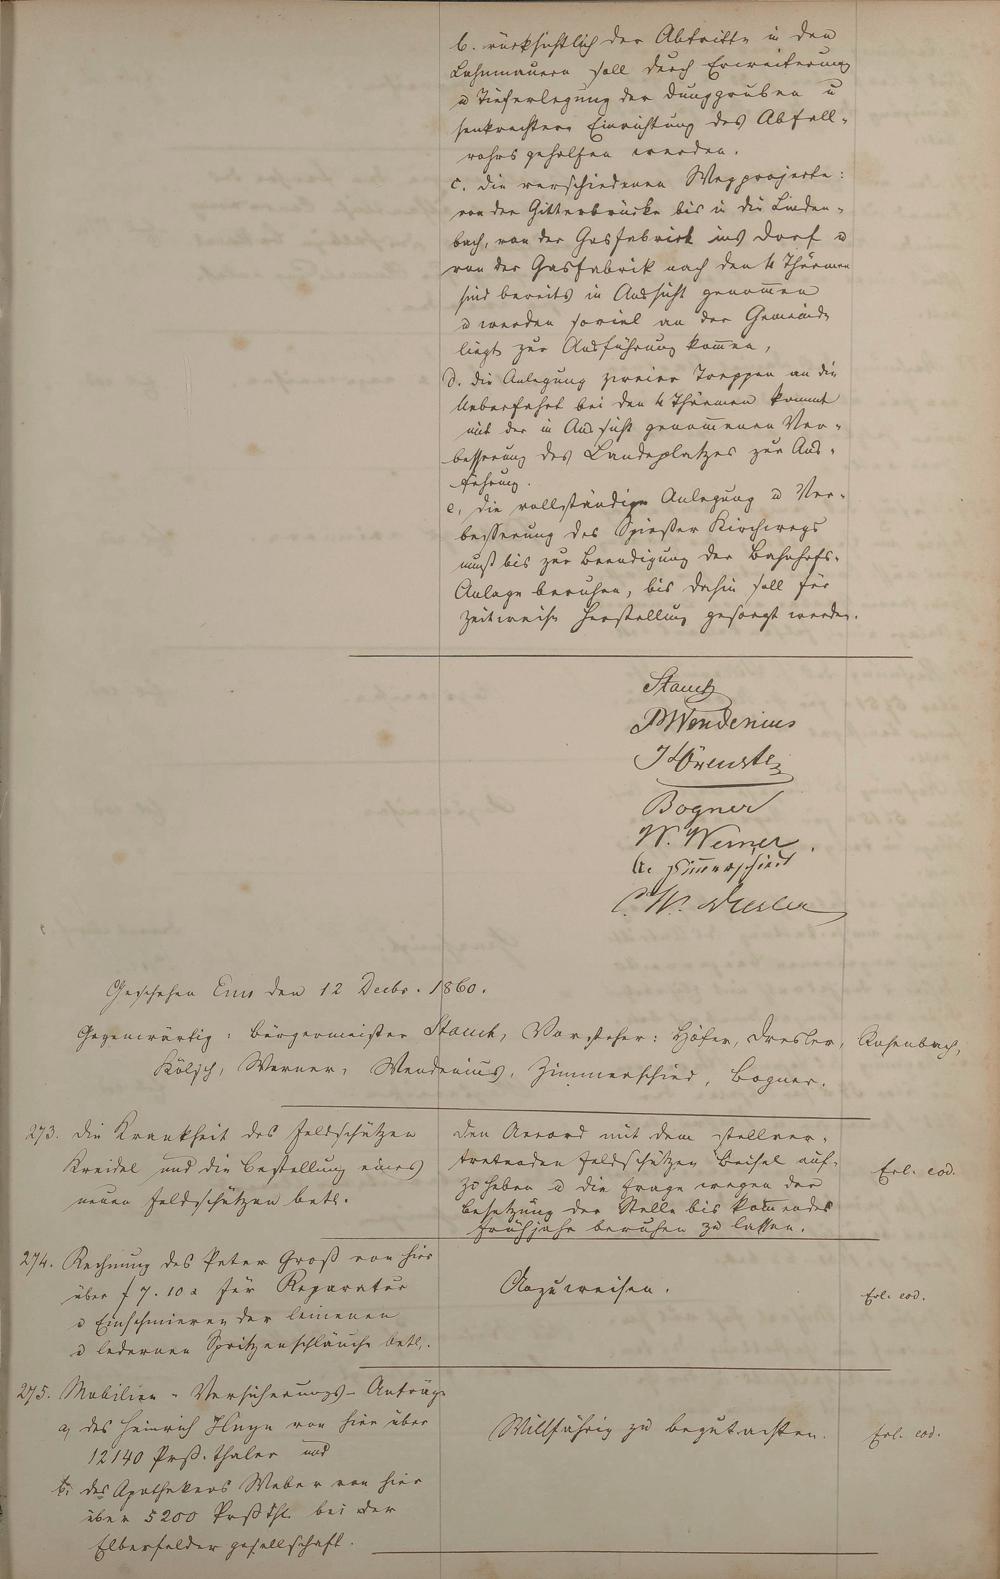 b. rücksichtlich der Abtritte in den
Lahnmauern soll durch Erweiterung
u Tieferlegung der Dunggruben u
senkrechtere Einrichtung des Abfall-
rohrs geholfen werden.
c. die verschiedenen Wegprojecte:
von der Gitterbrücke bis in die Linden-
bach, von der Gasfabrick ins Dorf u
von der Gasfabrik nach den 4 Thürmen
sind bereits in Aussicht genommen
u werden soviel an der Gemeinde
liegt zur Ausführung kommen,
d. die Anlegung zweier Treppen an die
Ueberfahrt bei den 4 Thürmen kommt
mit der in Aussicht genommenen Ver-
besserung des Landeplatzes zur Aus-
führung.
e, die vollständige Anlegung u Ver-
besserung des Spießer Kirchwegs
muß bis zur Beendigung der Bahnhofs-
Anlage beruhen, bis dahin soll für
zeitweise Herstellung gesorgt werden.
Stauch
Wenderius
Bogner
W. Werner.
Zimmerschied
C. W. Dresler
Geschehen Ems den 12 Decbr. 1860.
Gegenwärtig: Bürgermeister Stauch, Vorsteher: Höfer, Dresler, Rosenbach,
Kölsch, Werner, Wenderius, Zimmerschied, Bogner.
273. Die Krankheit des Feldschützen
Kreidel und die Bestellung eines
neuen Feldschützen betr.
Den Accord mit dem stellver-
tretenden Feldschützen Beisel auf-
zuheben u die Frage wegen der
Besetzung der Stelle bis kommendes
Frühjahr beruhen zu lassen.
Erl. eod.
274. Rechnung des Peter Groß von hier
über f 7. 10 x für Reparatur
u Einschmieren der leinenen
u ledernen Spritzenschläuche betr.
Anzuweisen.
Erl. eod.
275. Mobilien-Versicherungs-Anträge
a, des Heinrich von hier über
12140 Prß. Thaler und
b. des Apothekers Weber von hier
über 5200 Prß Thl. bei der
Elberfelder Gesellschaft.
Willfährig zu begutachten.
Erl. eod.